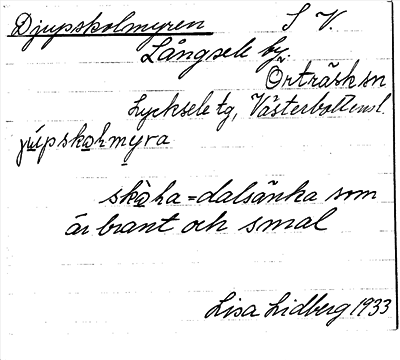 Djupskolmyren S V.
Långsele by,
Örträsk sn
Lycksele tg, Västerbottensl.
júpskoḷmyra
skòḷa = dalsänka som
är brant och smal
Lisa Lidberg 1933